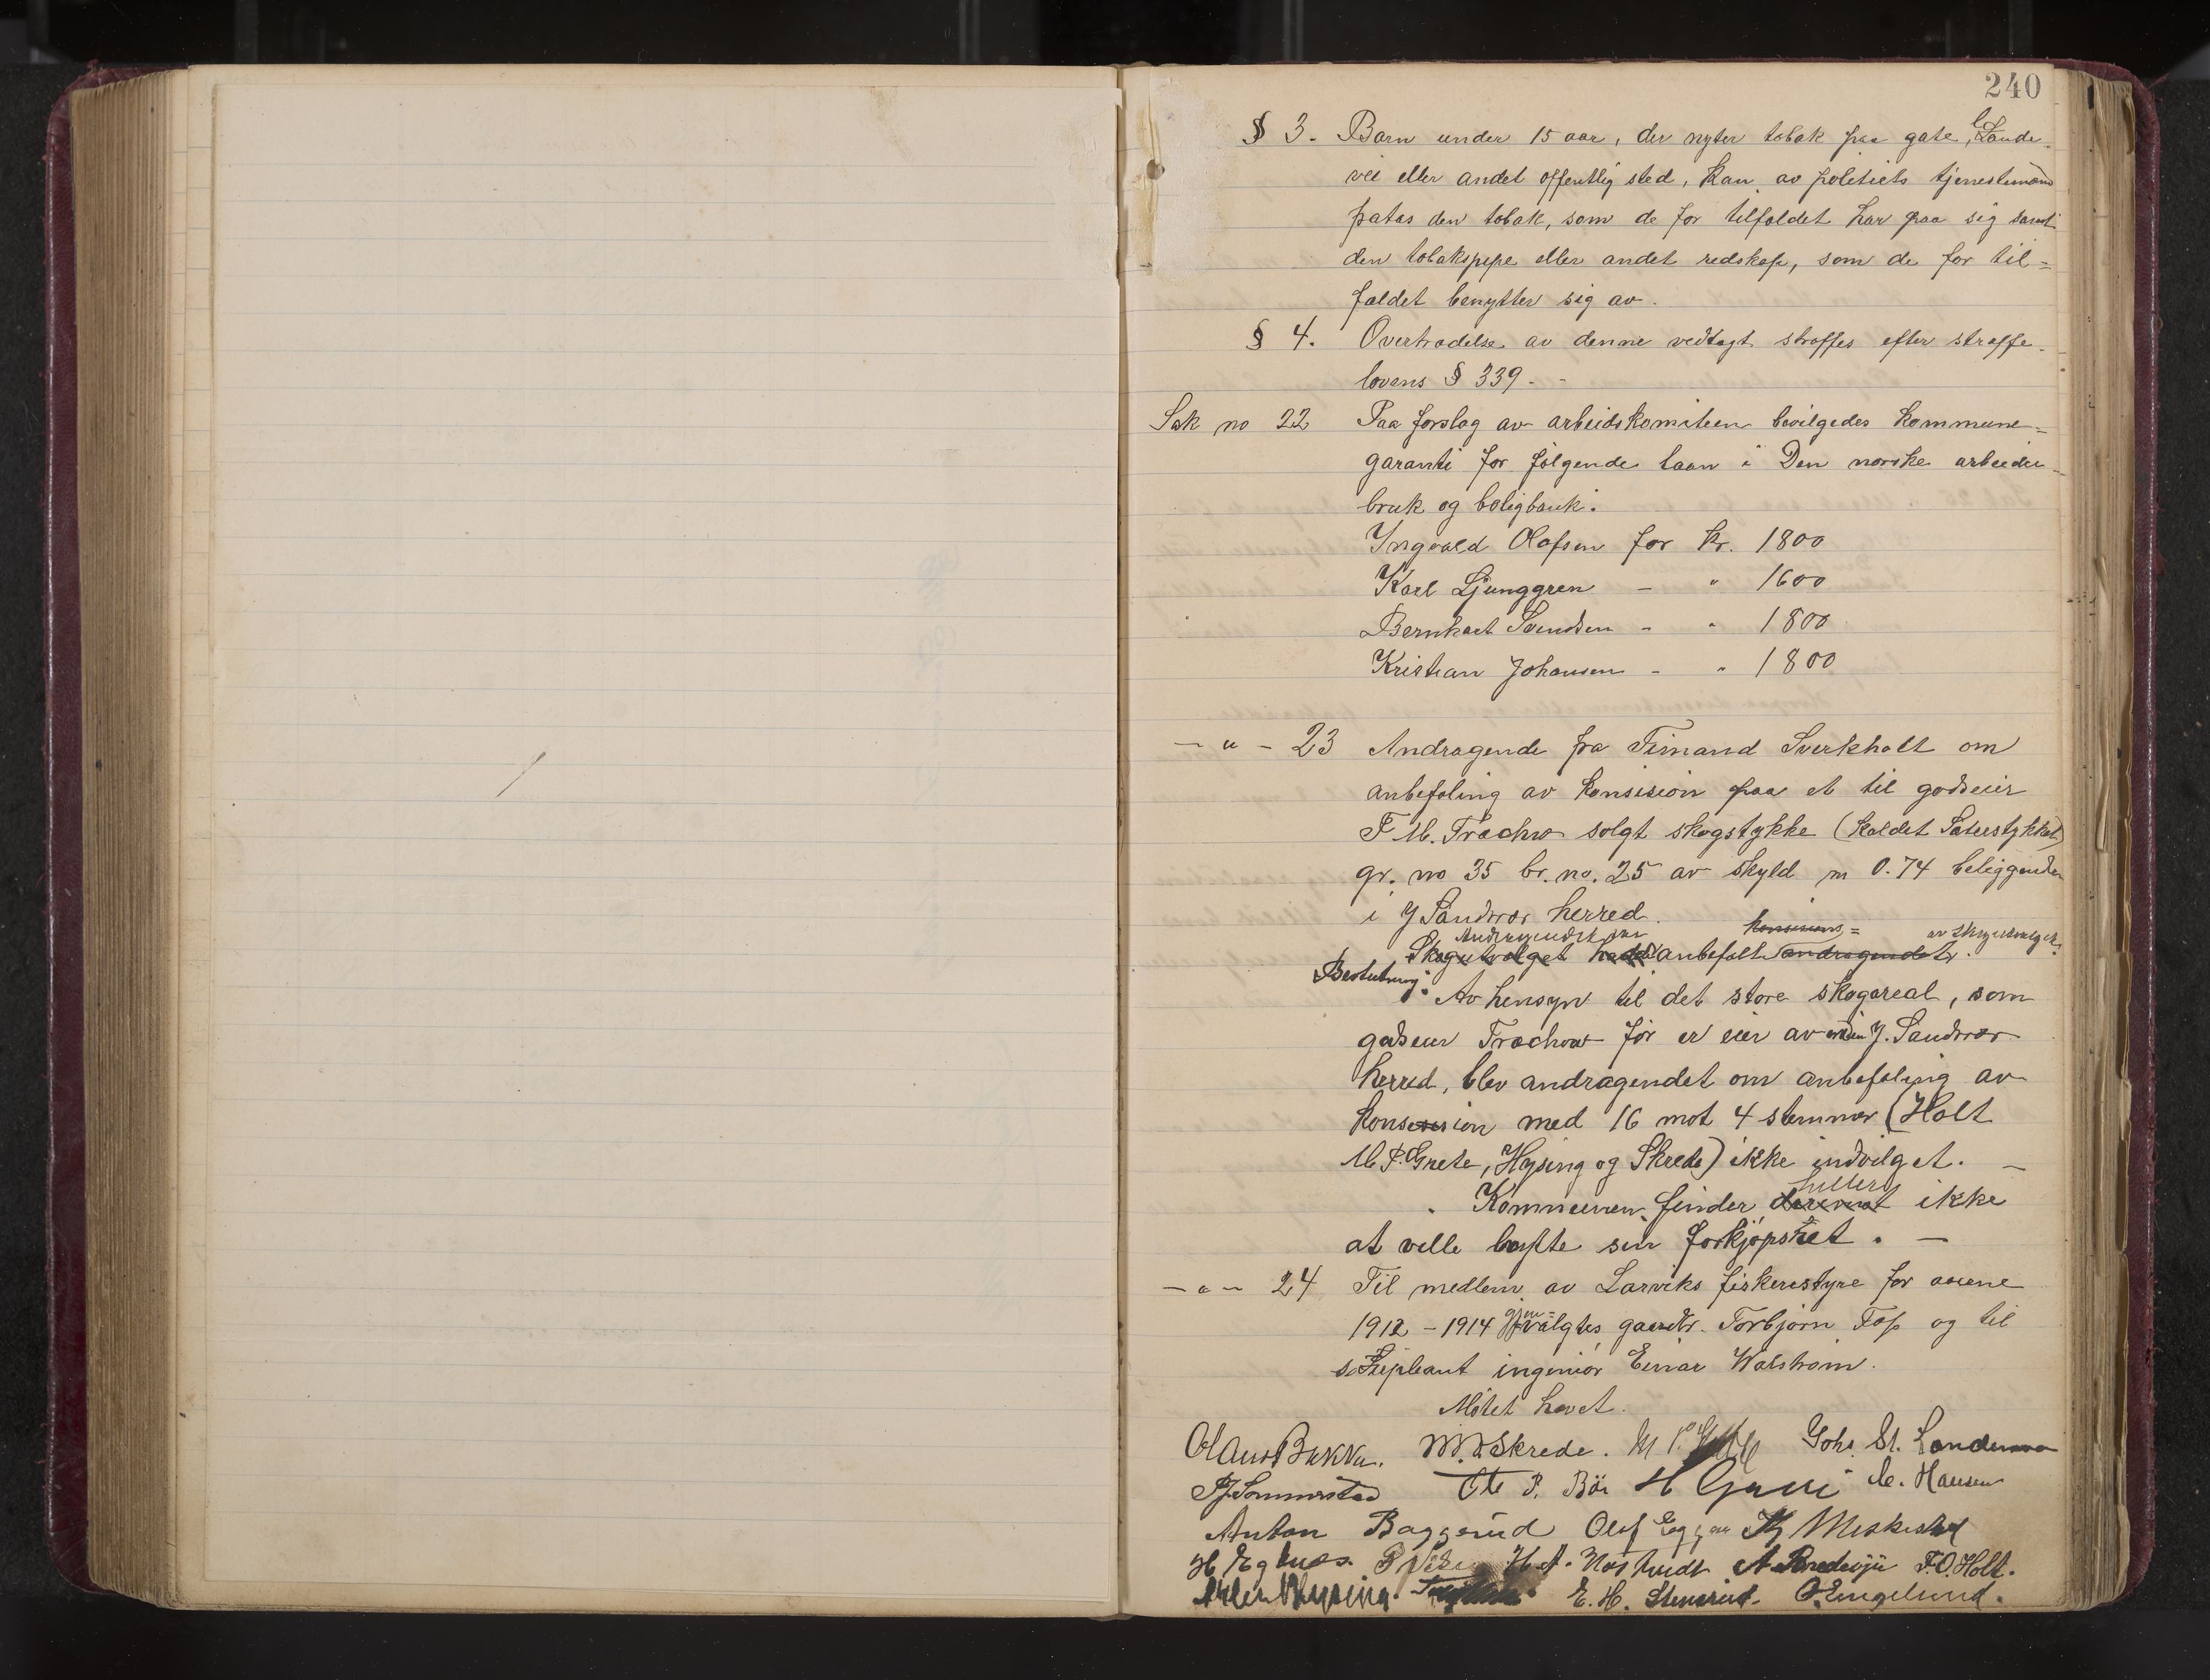 240
§ 3. Barn under 15 aar, der nyter tobak paa gate, lande-
vei eller andet offentlig sted, kan av politiets tjenestemænd
fratas den tobak, som de for tilfældet har paa sig samt
den tobakspipe eller andet redskap, som de for til=
fældet benytter sig av.
§ 4. Overtrædelse av denne vedtægt straffes efter straffe-
lovens § 339.-
Sak no 22 Paa forslag av arbeidskomiteen bevilgedes kommune=
garanti for følgende laan i Den norske arbeider-
bruk og boligbank:
Yngvald Olafsen for kr. 1800
Karl Ljunggren - " 1600
Bernhart Svendsen - " 1800
Kristian Johansen - " 1800
- " - 23 Andragende fra Finand Sverkholt om
anbefaling av konsesion paa et til godseier
F M. Træchow solgt skogstykke (kaldet Sæterstykket)
gr. no 35 br. no. 25 av skyld m 0.74 beliggende
i Y Sandsvær herred.
Andragendet var konsesions= av skogutvalget
Skogutvalget hadde anbefalt andragendet.
Beslutning: Av hensyn til det store skogareal, som
godseier Træchow før er eier av inden Y. Sandsvær
herred, blev andragendet om anbefaling av
konsesion med 16 mot 4 stemmer (Holt
M P. Grette, Hysing og Skrede) ikke indvilget. -
heller
Kommunen finder derimot ikke
at ville benytte sin forkjøpsret. -
- " - 24 Til medlem av Larviks fiskeristyre for aarene
1912 - 1914 gjen=valgtes gaardbr. Torbjørn Foss og til
suppleant ingeniør Einar Walstrøm.
Møtet hævet.
Olaus Bakka. M. Skrede. M P. Johs. St. Landerud
P J Sommerstad Ole P. Bøe H Grette C. Hansen
Anton Baggerud Olaf Eggar
H Eknæs. H. A. A Bredesju F. O. Holt.
Hysing. E. H. Stensrud. O. Engelund.